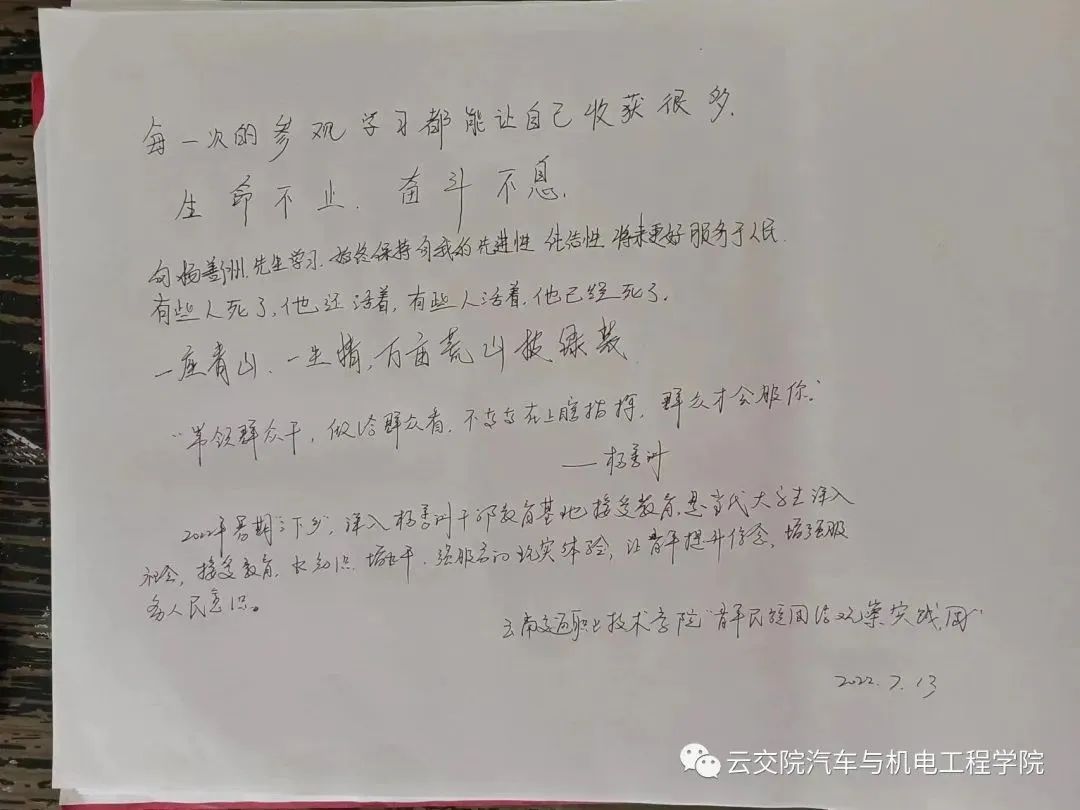 每一次的参观学习都能让自己收获很多.
生命不止.奋斗不息.
向杨善洲.先生学习.始终保持自我的先进性 纯洁性.将来更好服务于人民.
有些人死了,他还活着,有些人活着.他已经死了.
一座青山.一生情,万亩荒山披绿装
"带领群众干,做给群众看.不高高在上瞎指挥.群众才会服你."
——杨善洲
2022年暑期"三下乡",深入杨善洲干部教育基地接受教育.是当代大学生深入
社会,接受教育.长知识.增才干.强服务的现实体验,让青年提升信念,增强服
务人民意识。
云南交通职业技术学院"青年民族团结观察实践团"
2022.7.13
云交院汽车与机电工程学院